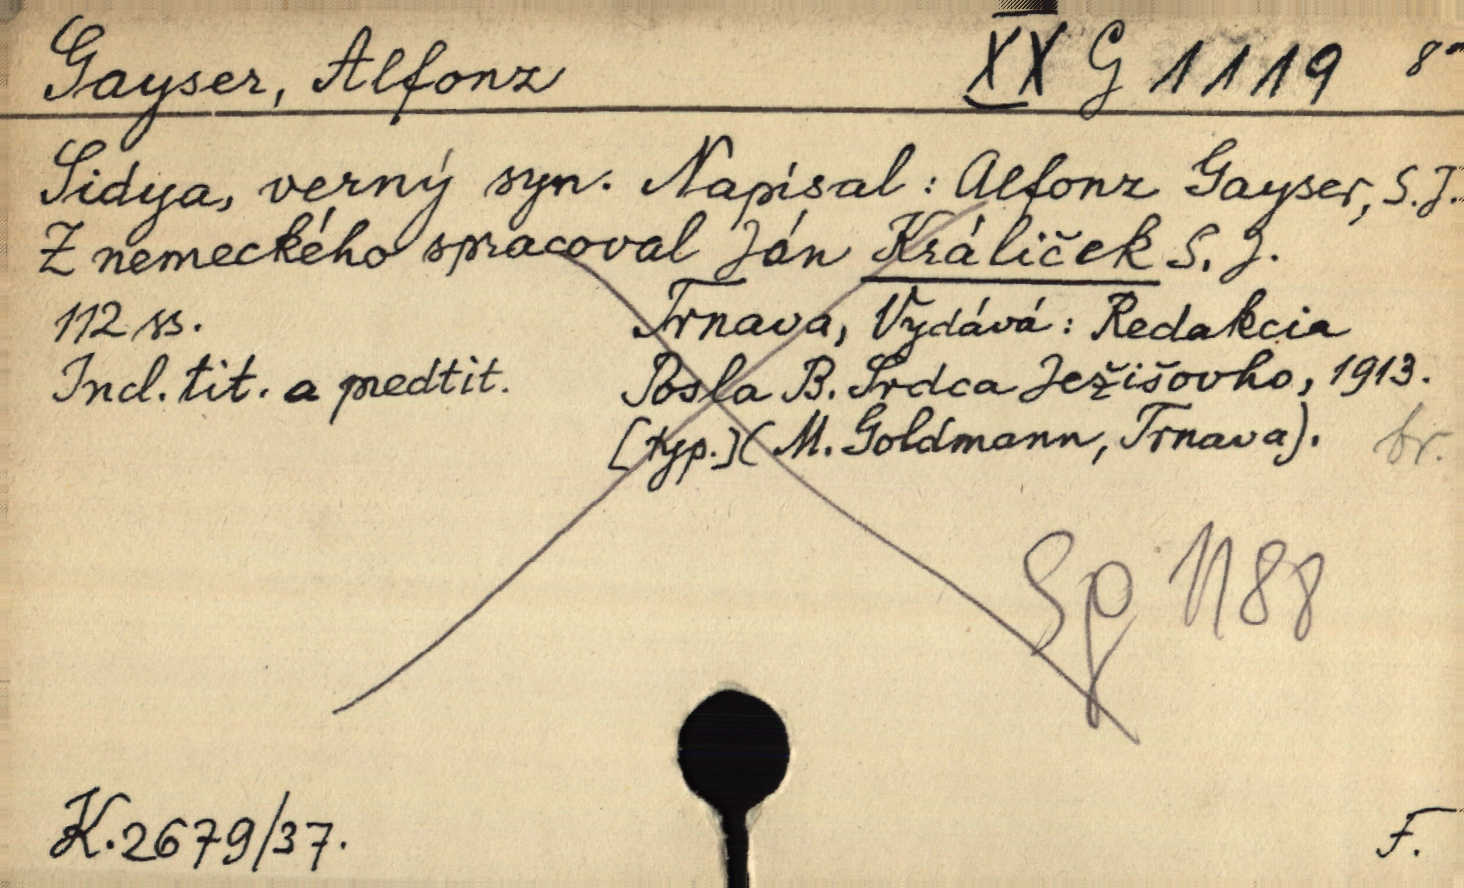 Gayser, Alfonz XX G 1119 8°
Sidya, verný syn. Napísal: Alfonz Gayser, S.J.
Z nemeckého spracoval Ján Králiček S.J.
112 ss. Trnava, Vydává: Redakcia
Incl. tit. a predtit. Posla B. Srdca Ježišovho, 1913.
[typ.] (M. Goldmann, Trnava). br.
Sp 1188
K.2679/37. F.